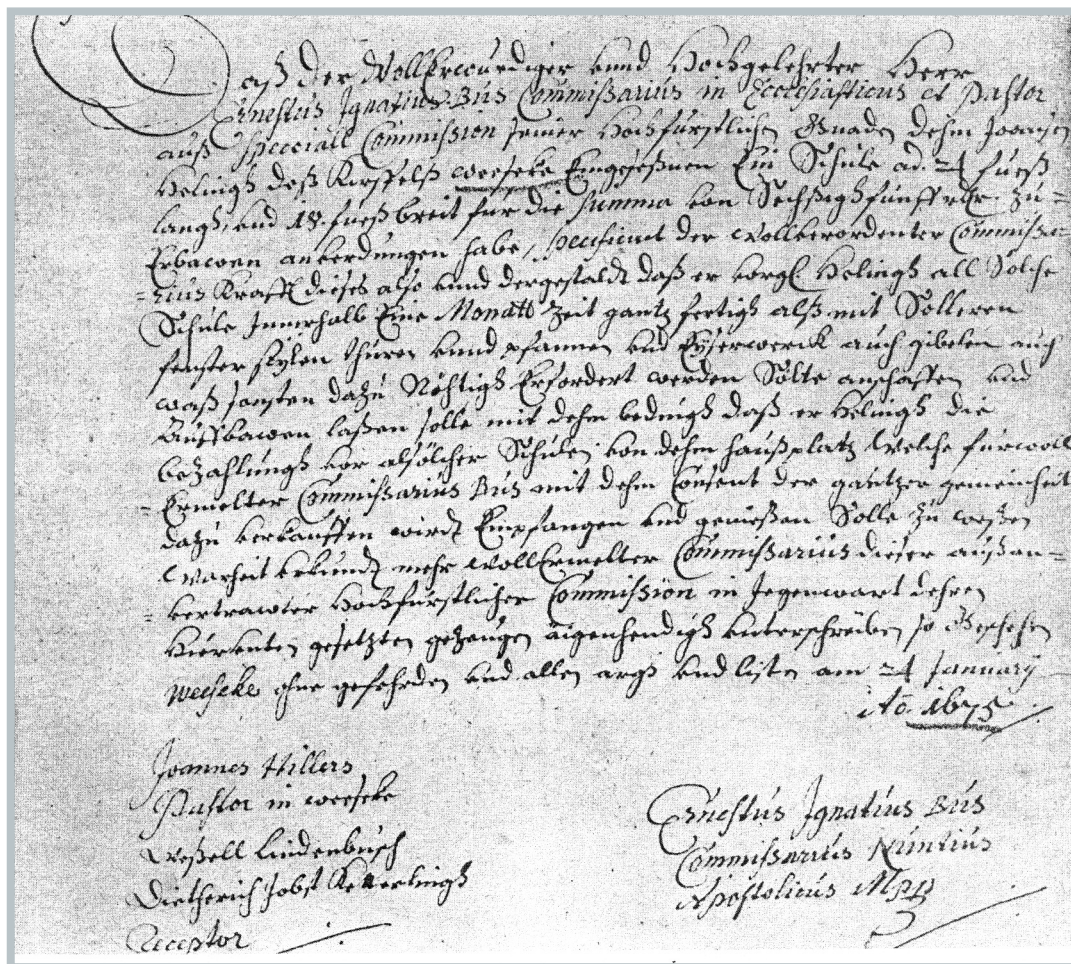 Daß der Wollerwurdiger unnd Hochgelehrter Herr
Ernestus Ignatius Bus Commißarius in Ecclesiasticus et Pastor
auß speciall Commission seiner Hochfürstlichen Gnaden dehm Joansen
Helingh deß Kirspelß weeseke Eingeseßnen Ein Schule ad 24 fueß
langh und 18. fueß breit für die summa von Sechßigh fünff rthr. zu=
Erbawen anverdungen habe, specificirt der wollverordenter Commißa=
=rius Krafft dieses also unnd dergestaldt daß er vorgl. Helingh all Solche
Schule Innerhalb Eine Monatt Zeit gantz fertigh alß mit Solleren
fenster stylen thuren unnd pfannen und Eyserwerck auch gibelen auch
waß sonsten dazu Nöhtigh Erfordert werden Solte anschaffen und
Auffbawen laßen solle mit dehm bedingh daß er Helingh die
bezahlungh vor alsolcher Schulen von dehm haußplatz Welche furwoll
=Ermelter Commißarius Bus mit dehm Consent der gantzer gemeinheit
dazu verkauffen wirdt Empfangen und genießen Solle zu weßen
Warheit Urkundt mehr wollErmelter Commißarius dieser auß an=
=vertrawter Hochfürstlicher Commißion in Jegenwart dehren
hierunten gesetzten gezeugen aigenhendigh unterschreiben so Geschehen
Weeseke ohne gefehrden und allen argh und listen am 24 January
Ao. 1675
Joannes Hillers
Pastor in weeseke
Weßell Lindenbusch
Dietherich Jobst Kekerlingh
Receptor
Ernestus Ignatius Bus
Commißarius Nuntius
Apostolicus Mpp